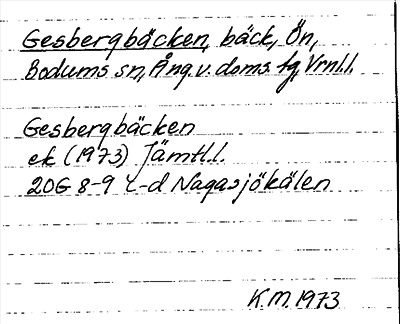 Gesbergbäcken, bäck, Ön,
Bodums sn, Ång. v. doms. tg, Vrnl.l.
Gesbergbäcken
ek (1973) Jämtl.l.
20G 8-9 c-d Nagasjökälen
K.M. 1973